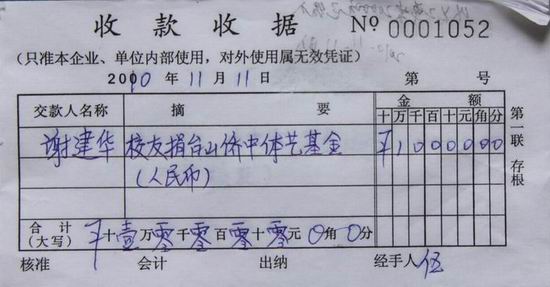 收款收据 Nº 0001052
(只准本企业、单位内部使用，对外使用属无效凭证)
2010 年 11 月 11 日 第 号
交款人名称 摘 要 金 额
十 万 千 百 十 元 角 分
谢建华 校友捐台山侨中体艺基金 ¥ 1 0 0 0 0 0 0
(人民币)
合 计 (大写) ¥ 十 壹 万 零 千 零 百 零 十 零 元 0 角 0 分
核准 会计 出纳 经手人 伍
第一联 存根